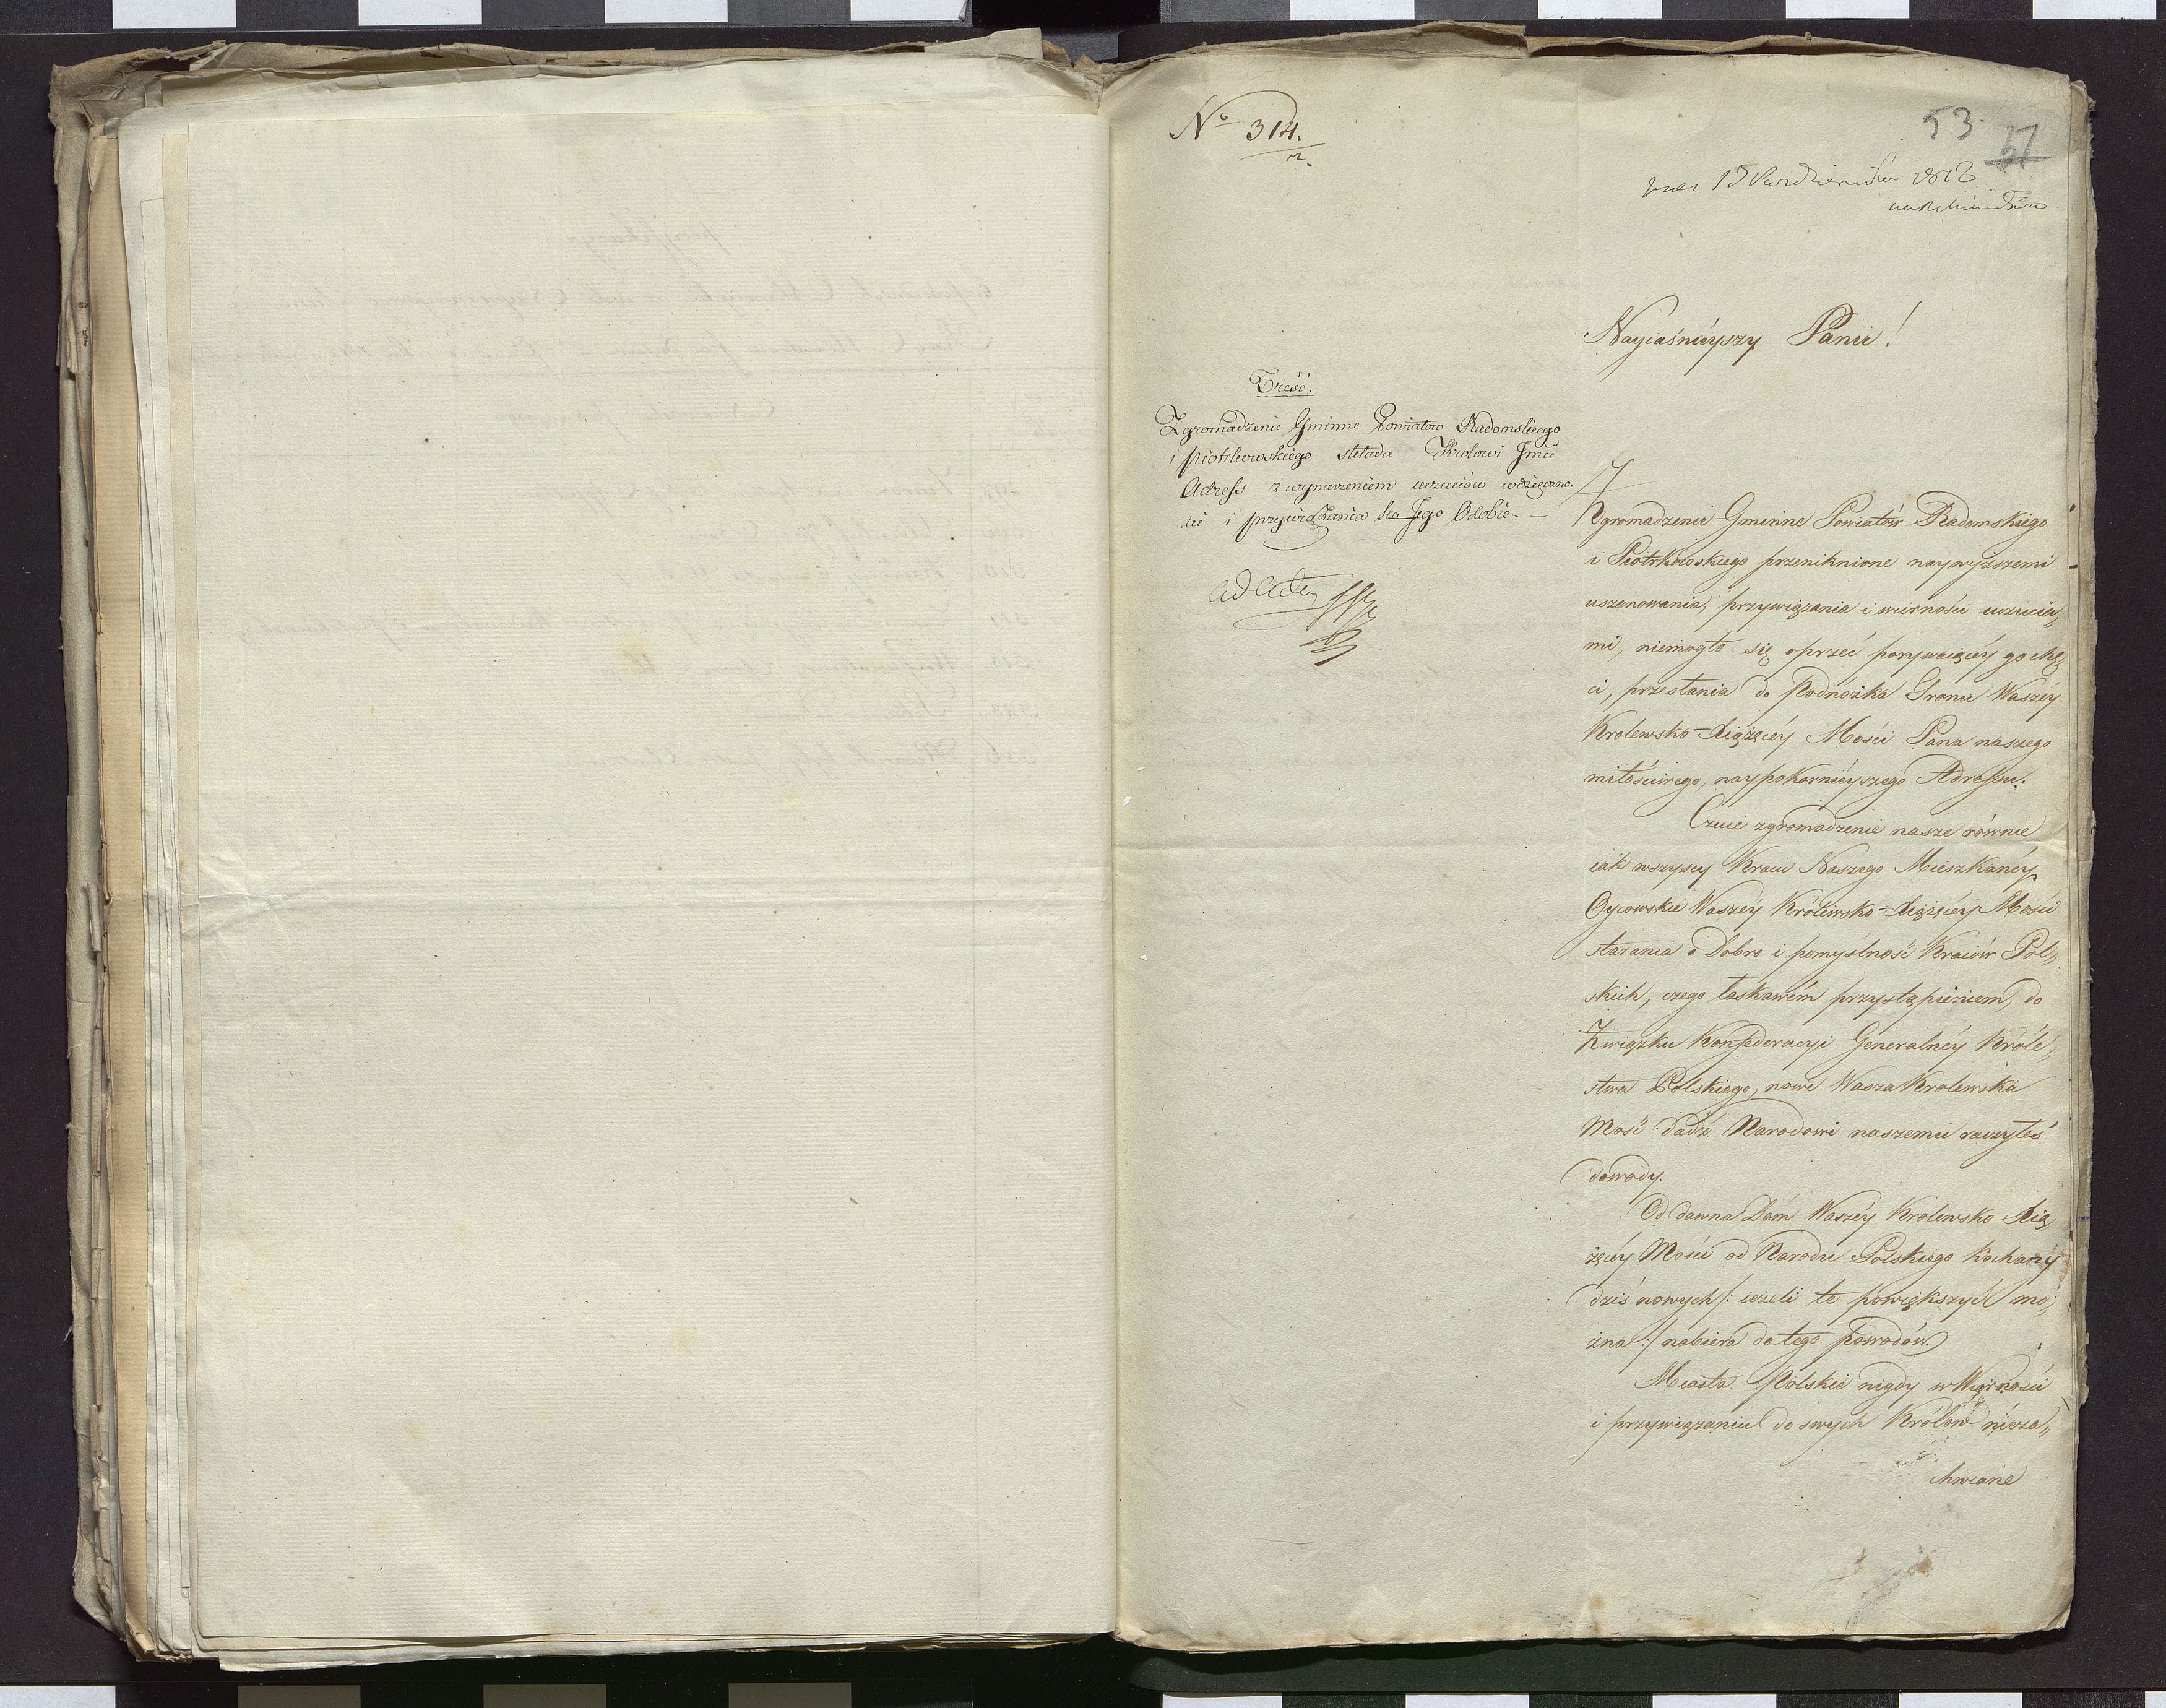 No 314.
53
57
1812
Nayiaśnieyszy Panie!
Treść.
Zgromadzenie Gminne Powiatow Radomskiego
i Piotrkowskiego składa Krolowi Jmci
Adress z wynurzeniem uczuciów wdzięczno,
ści i przywiązania ku Jego Osobie. —
ad acta
Zgromadzenie Gminne Powiatów Radomskiego
i Piotrkowskiego przeniknione naywyższemi
uszanowania, przywiązania i wierności uczucia„
mi, niemogło się oprzeć porywaiącey go chę,
ci, przesłania do Podnóżka Tronu Waszéy
Krolewsko-Xiążęcéy Mości Pana naszego
miłościwego, naypokornieyszego Adressu.
Czuie zgromadzenie nasze równie
iak wszyscy Kraiu Naszego Mieszkańcy
Oycowskie Waszéy Królewsko-Xiążęcéy Mości
starania o Dobro i pomyślność Kraiów Pol„
skich, czego łaskawém przystąpieniem, do
Związku Konfederacyi Generalnéy Króle„
stwa Polskiego, nowe Wasza Krolewska
Mość dadź Narodowi naszemu raczyłeś
dowody.
Od dawna Dóm Waszéy Krolewsko Xią,
żęcéy Mości od Narodu Polskiego kochany
dziś nowych /: ieżeli te powiększyć mo,
żna :/ nabiera do tego powodów.
Miasta Polskie nigdy w Wierności
i przywiązaniu do swych Królów nieza„
chwiane